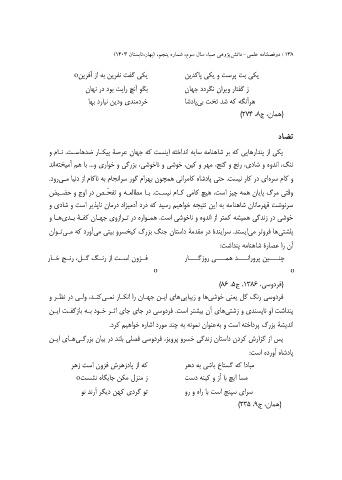 ۱۳۸ / دوفصلنامه علمی- دانش‌پژوهی صبا، سال سوم، شماره پنجم، (بهار-تابستان ۱۴۰۳)
یکی بت پرست و یکی پاکدین یکی گفت نفرین به از آفرین¤
ز گفتار ویران نگردد جهان بگو آنچ رایت بود در نهان
هرآنگه که شد تخت بی‌پادشا خردمندی ودین نیارد بها¤
(همان، ج۸، ۲۷۴)
تضاد
یکی از پندارهایی که بر شاهنامه سایه انداخته اینست که جهان عرصهٔ پیکـار ضدهاسـت. نـام و
ننگ، اندوه و شادی، رنج و گنج، مهر و کین، خوشی و ناخوشی، بزرگی و خواری و... با هم آمیخته‌اند
و کام سره‌ای در کار نیست. حتی پادشاه کامرانی همچون بهرام گور سرانجام به ناکام از دنیا مـی‌رود.
وقتی مرگ پایان همه چیز است، هیچ کامی کـام نیسـت. بـا مطالعـه و تفحّـص در اوج و حضـیض
سرنوشت قهرمانان شاهنامه به این نتیجه خواهیم رسید که درد آدمیزاد درمان ناپذیر است و شادی و
خوشی در زندگی همیشه کمتر از اندوه و ناخوشی است. همـواره در تـرازوی جهـان کفـهٔ بـدی‌هـا و
پلشتی‌ها فرونر می‌ایستد. سرایندهٔ در مقدمهٔ داستان جنگ بزرگ کیخسرو بیتی می‌آورد که مـی‌تـوان
آن را عصارهٔ شاهنامه پنداشت:
چنـــــین پرورانـــــد همـــــی روزگـــــار فـزون اسـت از رنـگ گـل، رنـج خـار
¤ ¤
(فردوسی، ۱۳۸۶، ج۵، ۸۶)
فردوسی رنگ گل یعنی خوشی‌ها و زیبایی‌های ایـن جهـان را انکـار نمـی‌کنـد، ولـی در نظـر و
پنداشت او ناپسندی و زشتی‌های آن بیشتر است. فردوسی در جای جای اثـر خـود بـه بازگفـت ایـن
اندیشهٔ بزرگ پرداخته است و به‌عنوان نمونه به چند مورد اشاره خواهیم کرد.
پس از گزارش کردن داستان زندگی خسرو پرویز، فردوسی فصلی بلند در بیان بزرگـی‌هـای ایـن
پادشاه آورده است:
مبادا که گستاخ باشی به دهر که از پادزهرش فزون است زهر
مسا ایچ با آز و کینه دست ز منزل مکن جایگاه نشست¤
سرای سپنج است با راه و رو تو گردی کهن دیگر آرند نو
(همان، ج۹، ۲۳۵)